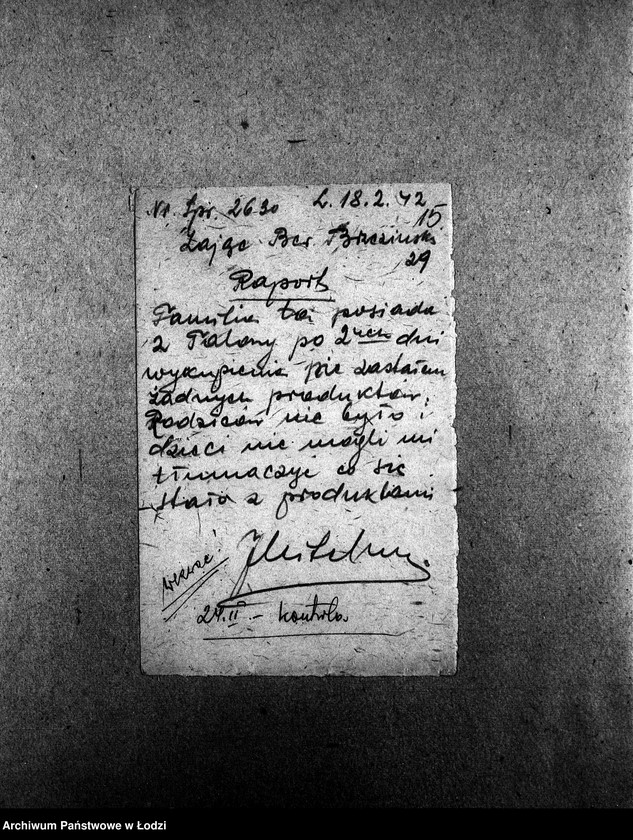 Nr. Spr. 2630 Ł. 18.2.42
15
Zając Ber Brzezinska
29
Raport
Familia ta posiada
2 Talony po 2uch dni
wykupienia nie zastałem
żadnych produktów,
Rodziców nie było i
dzieci nie mogli mi
tłumaczyć co się
stało z produktami
24.II – kontrola
Archiwum Państwowe w Łodzi